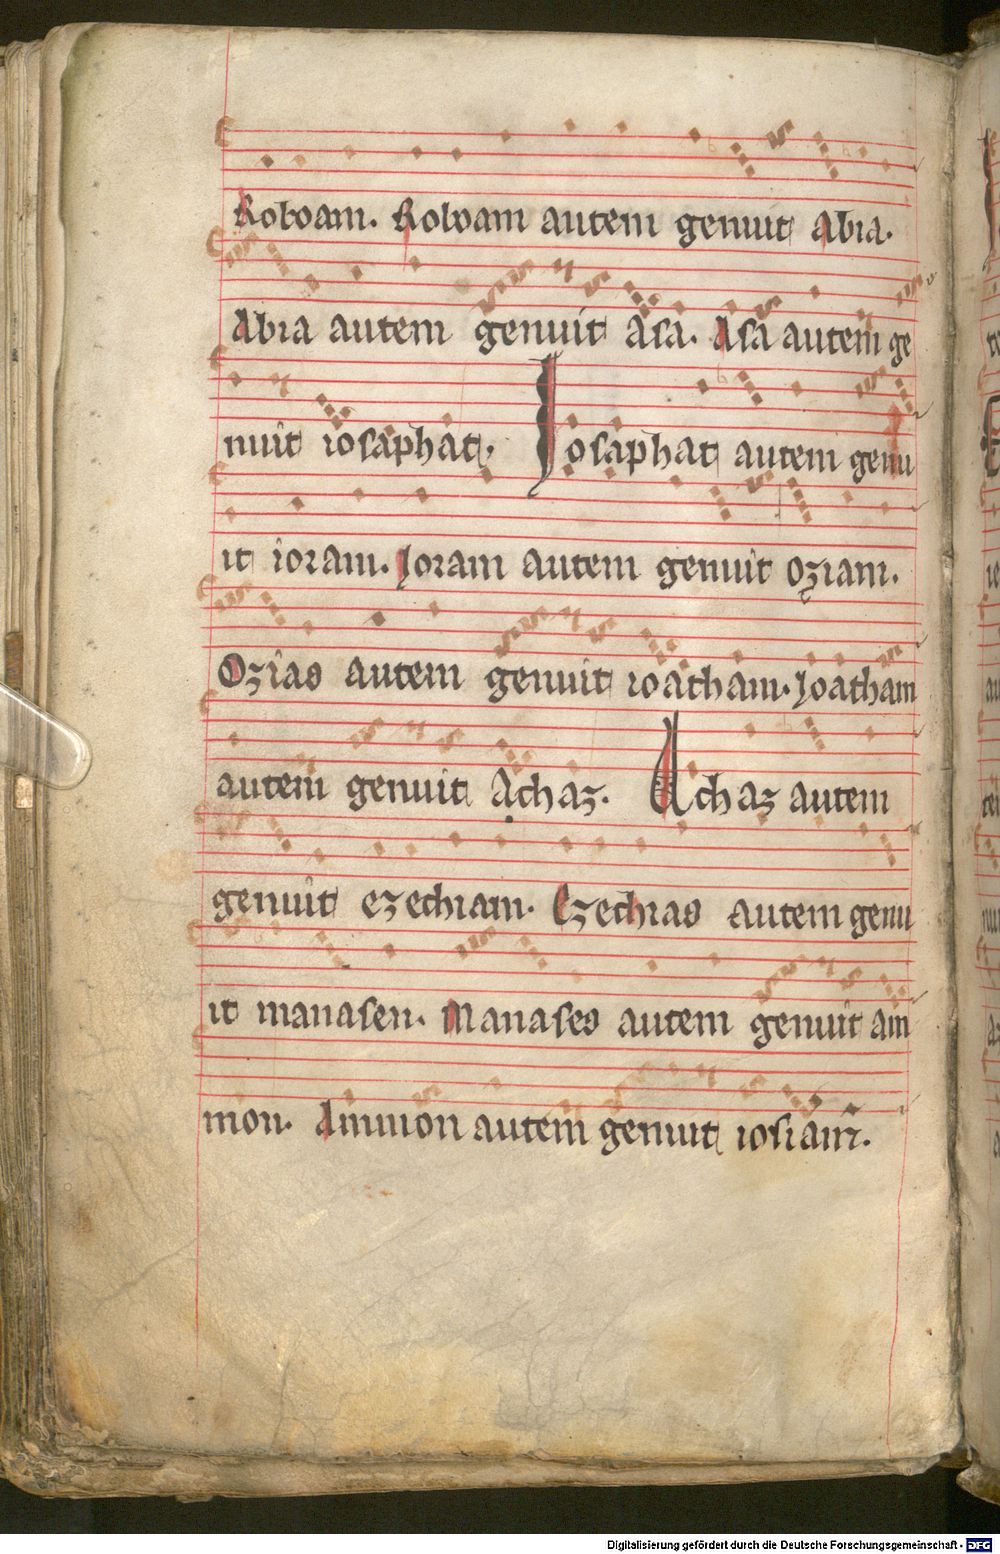 Roboam. Roboam autem genuit abia.
Abia autem genuit asa. Asa autem ge
nuit iosaphat. Iosaphat autem genu
it ioram. Joram autem genuit oziam.
Ozias autem genuit ioatham. Joatham
autem genuit Achaz. Achaz autem
genuit ezechiam. Ezechias autem genu
it manasen. Manases autem genuit am
mon. Ammon autem genuit iosiam.
Digitalisierung gefördert durch die Deutsche Forschungsgemeinschaft - DFG